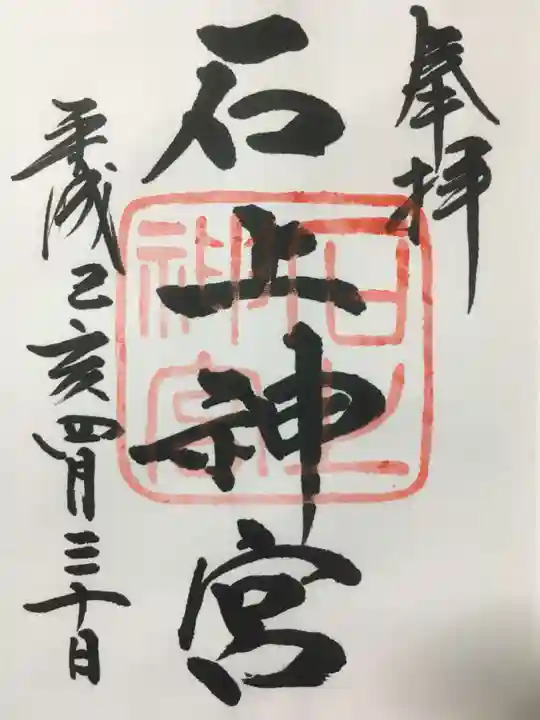 奉拝
石上神宮
石上神宮
平成己亥四月三十日